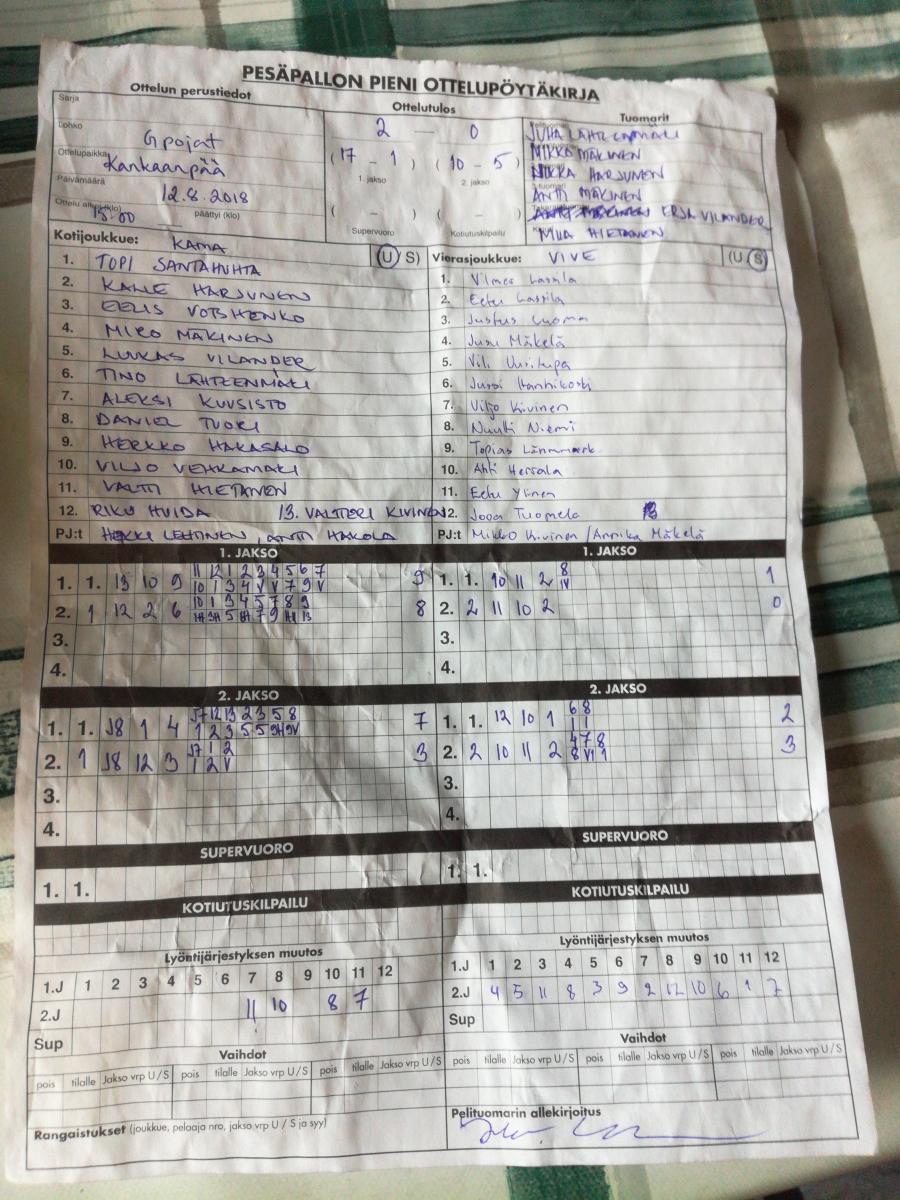 PESÄPALLON PIENI OTTELUPÖYTÄKIRJA
Ottelun perustiedot
Ottelutulos
Tuomarit
Sarja
Lohko
G pojat
Ottelupaikka
Kankaanpää
Päivämäärä
12.8.2018
Ottelu alkoi (klo)
15.00
päättyi (klo)
2 — 0
(17 - 1) (10 - 5)
1. jakso 2. jakso
( - ) ( - )
Supervuoro Kotiutuskilpailu
JUHA LAHTEENMÄKI
MIKKO MÄKINEN
HARJUNEN
ANTTI MÄKINEN
ERJA VILANDER
MIIA HIETANEN
Kotijoukkue: KAMA (U/S)
1. TOPI SANTAHUHTA
2. KALLE HARJUNEN
3. EELIS VOTSHENKO
4. MIRO MÄKINEN
5. LUUKAS VILANDER
6. TINO LÄHTEENMÄKI
7. ALEKSI KUUSISTO
8. DANIEL TUORI
9. HERKKO HAKASALO
10. VILJO VEHKAMÄKI
11. VALTTI HIETANEN
12. RIKU HUIDA 13. VALTTERI KIVINEN
PJ:t HEIKKI LEHTINEN, ANTTI HAKOLA
Vierasjoukkue: VIVE (U/S)
1. Vilmer Lassila
2. Eetu Lassila
3. Justus Luoma
4. Jusu Mäkelä
5. Vili Uusitupa
6. Jussi Hannikoski
7. Viljo Kivinen
8. Nuutti Niemi
9. Topias Lännmark
10. Ahti Hersala
11. Eetu Ylinen
12. Joona Tuomela
PJ:t Mikko Kivinen / Annika Mäkelä
1. JAKSO
1. 1. 13 10 9 11 12 1 2 3 4 5 6 7 9
10 1 3 4 V V 7 9 V
2. 1 12 2 6 10 1 3 4 5 7 8 9 8
3.
4.
1. JAKSO
1. 1. 10 11 2 8 1
IV
2. 2 11 10 2 0
3.
4.
2. JAKSO
1. 1. J8 1 4 J7 12 13 2 3 5 8 7
1 2 3 5 5 9H 9V
2. 1 J8 12 3 J7 1 2 3
1 2 V
3.
4.
2. JAKSO
1. 1. 12 10 1 6 8 2
1 1
2. 2 10 11 2 4 7 8 3
8 VI 1
3.
4.
SUPERVUORO
1. 1.
SUPERVUORO
1. 1.
KOTIUTUSKILPAILU
KOTIUTUSKILPAILU
Lyöntijärjestyksen muutos
1.J 1 2 3 4 5 6 7 8 9 10 11 12
2.J 11 10 8 7
Sup
Lyöntijärjestyksen muutos
1.J 1 2 3 4 5 6 7 8 9 10 11 12
2.J 4 5 11 8 3 9 2 12 10 6 1 7
Sup
Vaihdot
pois tilalle Jakso vrp U/S pois tilalle Jakso vrp U/S pois tilalle Jakso vrp U/S
Vaihdot
pois tilalle Jakso vrp U/S pois tilalle Jakso vrp U/S pois tilalle Jakso vrp U/S
Rangaistukset (joukkue, pelaaja nro, jakso vrp U / S ja syy)
Pelituomarin allekirjoitus